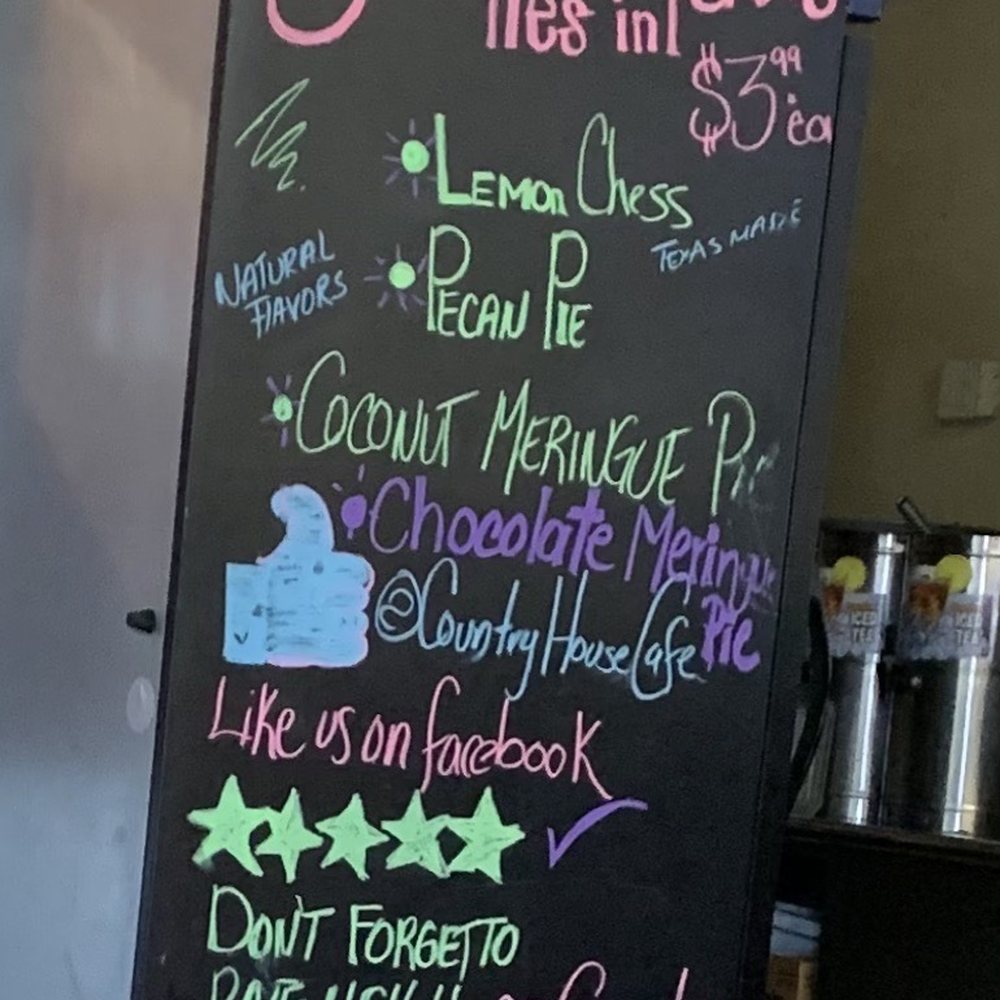 $3.99 ea
Lemon Chess
TEXAS MADE
NATURAL
FLAVORS
PECAN PIE
COCONUT MERINGUE
Chocolate Meringue
Pie
@CountryHouseCafe
Like us on facebook
DON'T FORGET TO
ICED
TEA
ICED
TEA